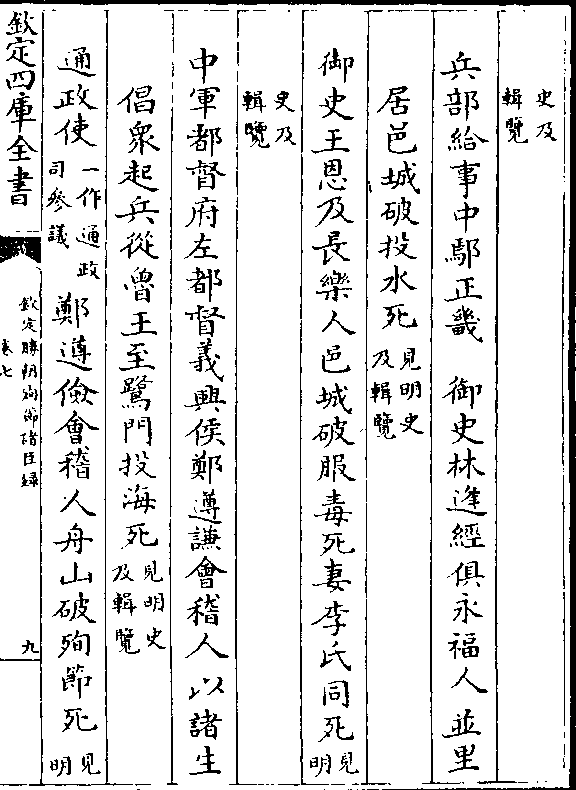 史及
輯覽
兵部給事中鄢正畿　御史林逢經俱永福人並里
居邑城破投水死見明史
及輯覽
御史王恩及長樂人邑城破服毒死妻李氏同死見
明
史及
輯覽
中軍都督府左都督義興侯鄭遵謙會稽人以諸生
倡衆起兵從魯王至鷺門投海死見明史
及輯覽
通政使一作通政
司參議鄭遵儉會稽人舟山破殉節死見
明
欽定四庫全書
欽定勝朝殉節諸臣録
卷七
九